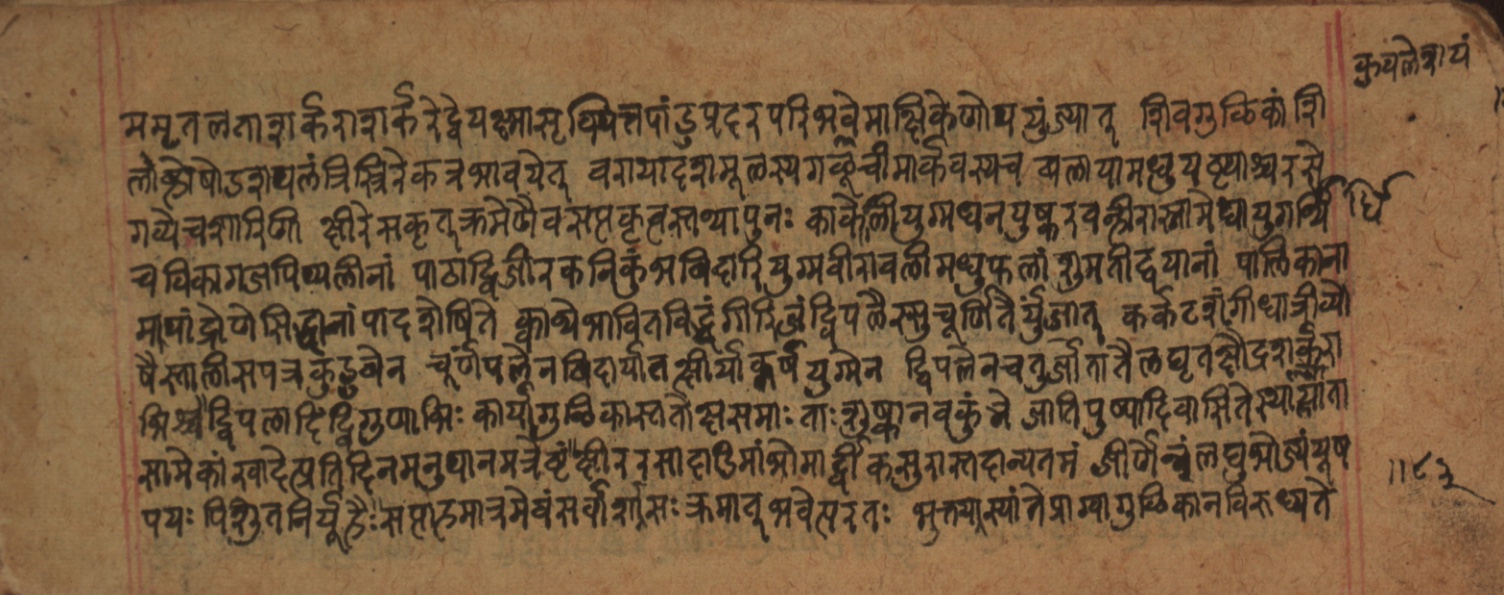 कुयलेशयं
ममृतलताशर्कराशर्करेद्वेयक्ष्मासृक्पित्तपांडुप्रदरपरिभवेमाक्षिकेणोपयुंज्यात् शिवगुळिकां शि
लाष्टौषोडशपलं त्रिस्त्रिरेकत्रभावयेत् वरायादशमूळस्यगळूचीमार्कवस्यच बालायामधुयष्ट्याश्चरसे
गव्येचशारिणी क्षीरेसकृत्क्रमेणैवसप्तकृत्वस्तथापुनः काकोलीयुग्मघनपुष्करवह्निरास्नामेघायुगर्धि
र्धि
चविकागजपिप्पलीनां पाठाद्विजीरकनिकुंभविदारियुग्मवीरावलीमधुफलांशुमतीद्वयानां पालिकाना
मापांद्रोणेसिद्धानांपादशेषिते क्वाथेभावितविद्धंगीरिजंद्विपलैस्सुचूर्णितैर्युंजात् कर्कटशृंगीधात्रीव्यो
षैस्तालीसपत्रकुडवेन चूर्णपलेनविदार्यातत्क्षीर्याकर्षयुग्मेन द्विपलेनचतुर्जातातैलघृतक्षौद्रशर्करा
भिश्चद्विपलादिद्विगुणाभिः कार्यागुळिकास्ततोक्षसमाः ताःशुष्कानवकुंभे जातिपुष्पादिवासितेस्थाप्याता
सामेकांखादेत्प्रतिदिनमनुपानमत्रेष्टं क्षीररसादाडिमांभोमार्द्वीकसुरास्तदान्यतमं जीर्णेन्नंलघुभोज्यंयूष
पयः पिशुतनिर्यूहैः सप्ताहमात्रमेवंसर्वाशीसः क्रमात्भवेत्परतः भुक्त्याप्स्यांतेप्राग्वागुळिकानविरुध्यते
॥८३